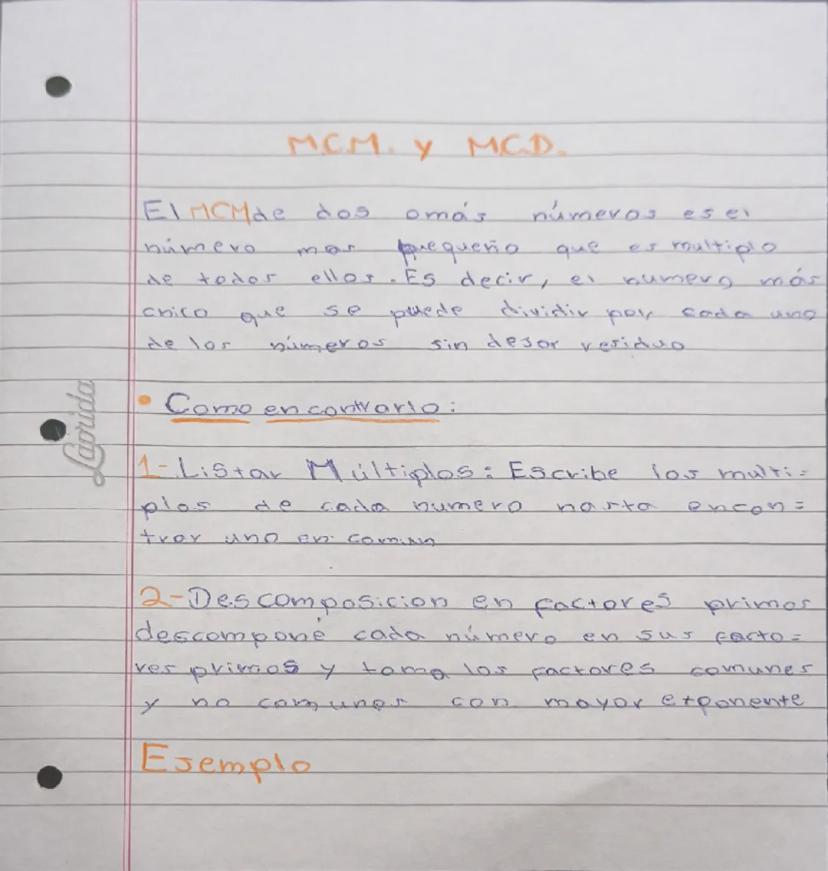 M.C.M. y M.C.D.
El MCM de dos o más números es el
número mas pequeño que es multiplo
de todos ellos. Es decir, el numero más
chico que se puede dividir por cada uno
de los números sin dejar residuo
• Como encontrarlo:
1- Listar Múltiplos: Escribe los multi=
plos de cada numero hasta encon=
trar uno en común
2- Descomposicion en factores primos
descomponé cada número en sus facto=
res primos y toma los factores comunes
y no comunes con mayor exponente
Esemplo
Laprida